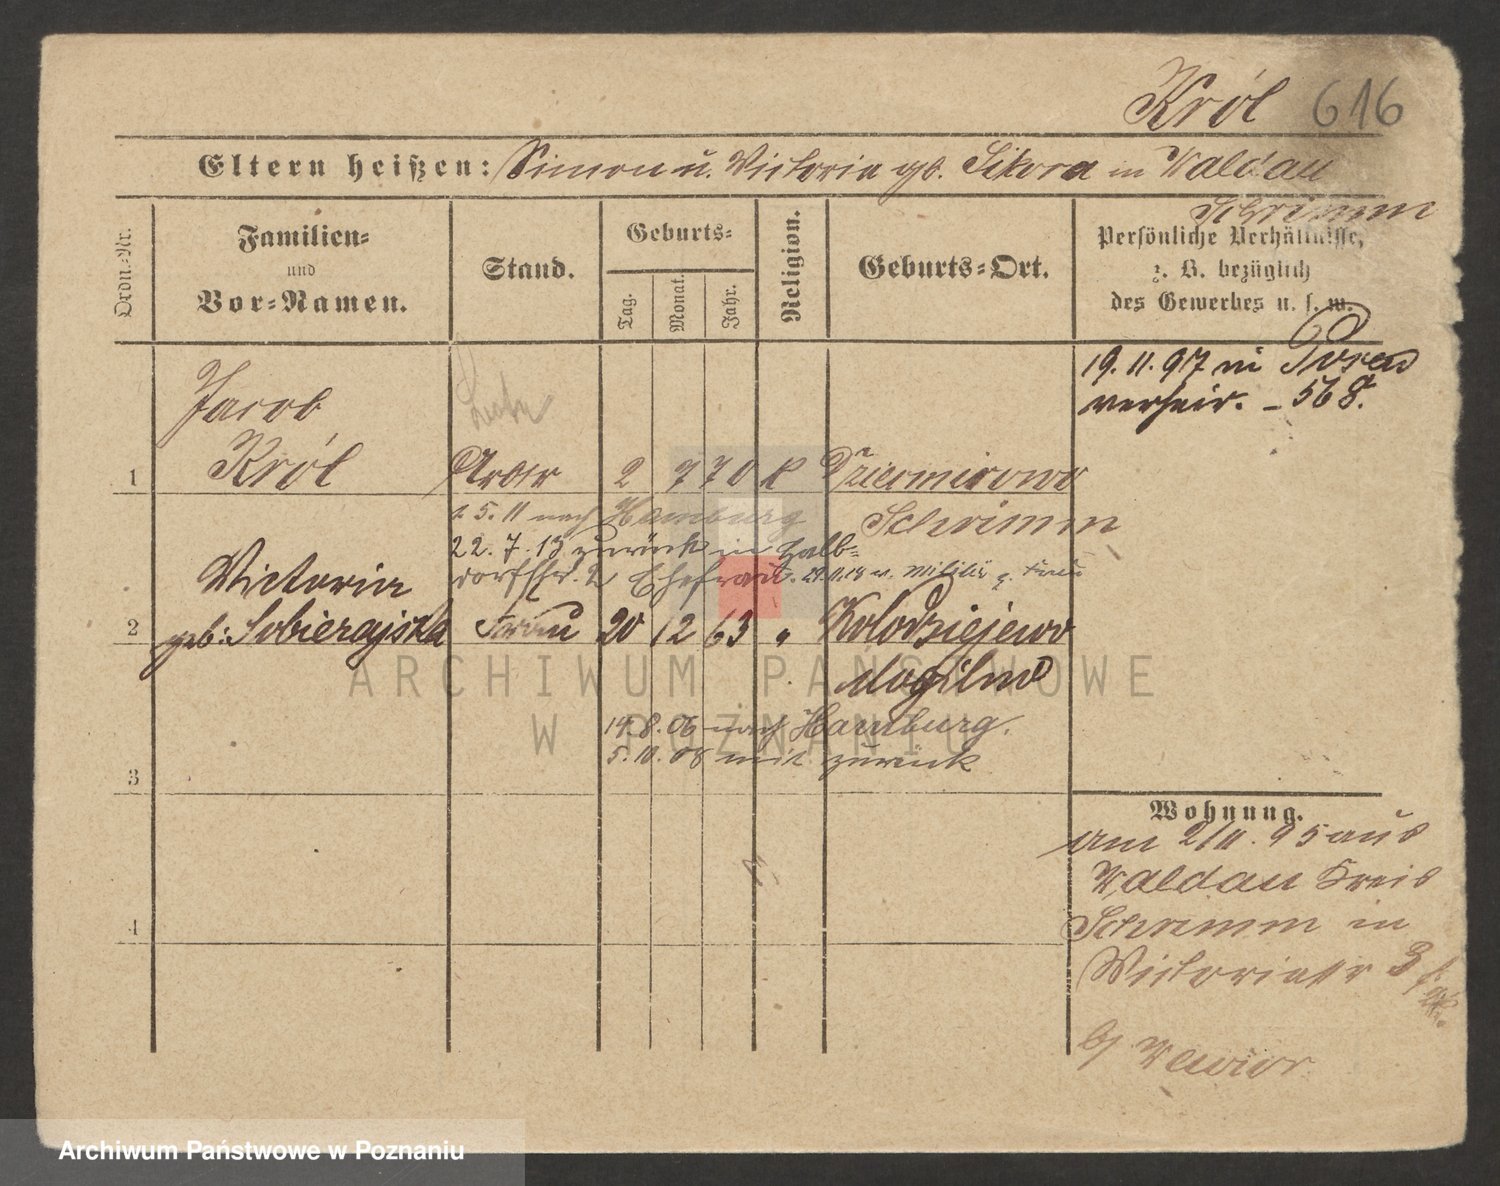 Król 616
Eltern heißen: Simon u. Victoria gb. Sikora in Waldau
Schrimm
Ordn.-Nr.
Familien-
und
Vor-Namen.
Stand.
Geburts-
Tag.
Monat.
Jahr.
Religion.
Geburts-Ort.
Persönliche Verhältnisse,
z. B. bezüglich
des Gewerbes u. s. w.
19.11.97 in Posen
verheir. - 568.
Jacob
1 Król Arbtr 2 7 70 K Dziermirowo
5. 11 nach Hamburg Schrimm
22. 7. 13 zurück in Halb-
dorfstr. 2 Ehefrau.
Victoria
2 geb: Sobierajska Frau 20 12 63 " Kolodziejewo
Mogilno
19.8.06 nach Hamburg.
3 5.10.08 mit zurück
Wohnung.
am 2/11. 95 aus
Waldau Kreis
4 Schrimm in
Victoriastr 3
b/
ARCHIWUM PAŃSTWOWE
W POZNANIU
Archiwum Państwowe w Poznaniu